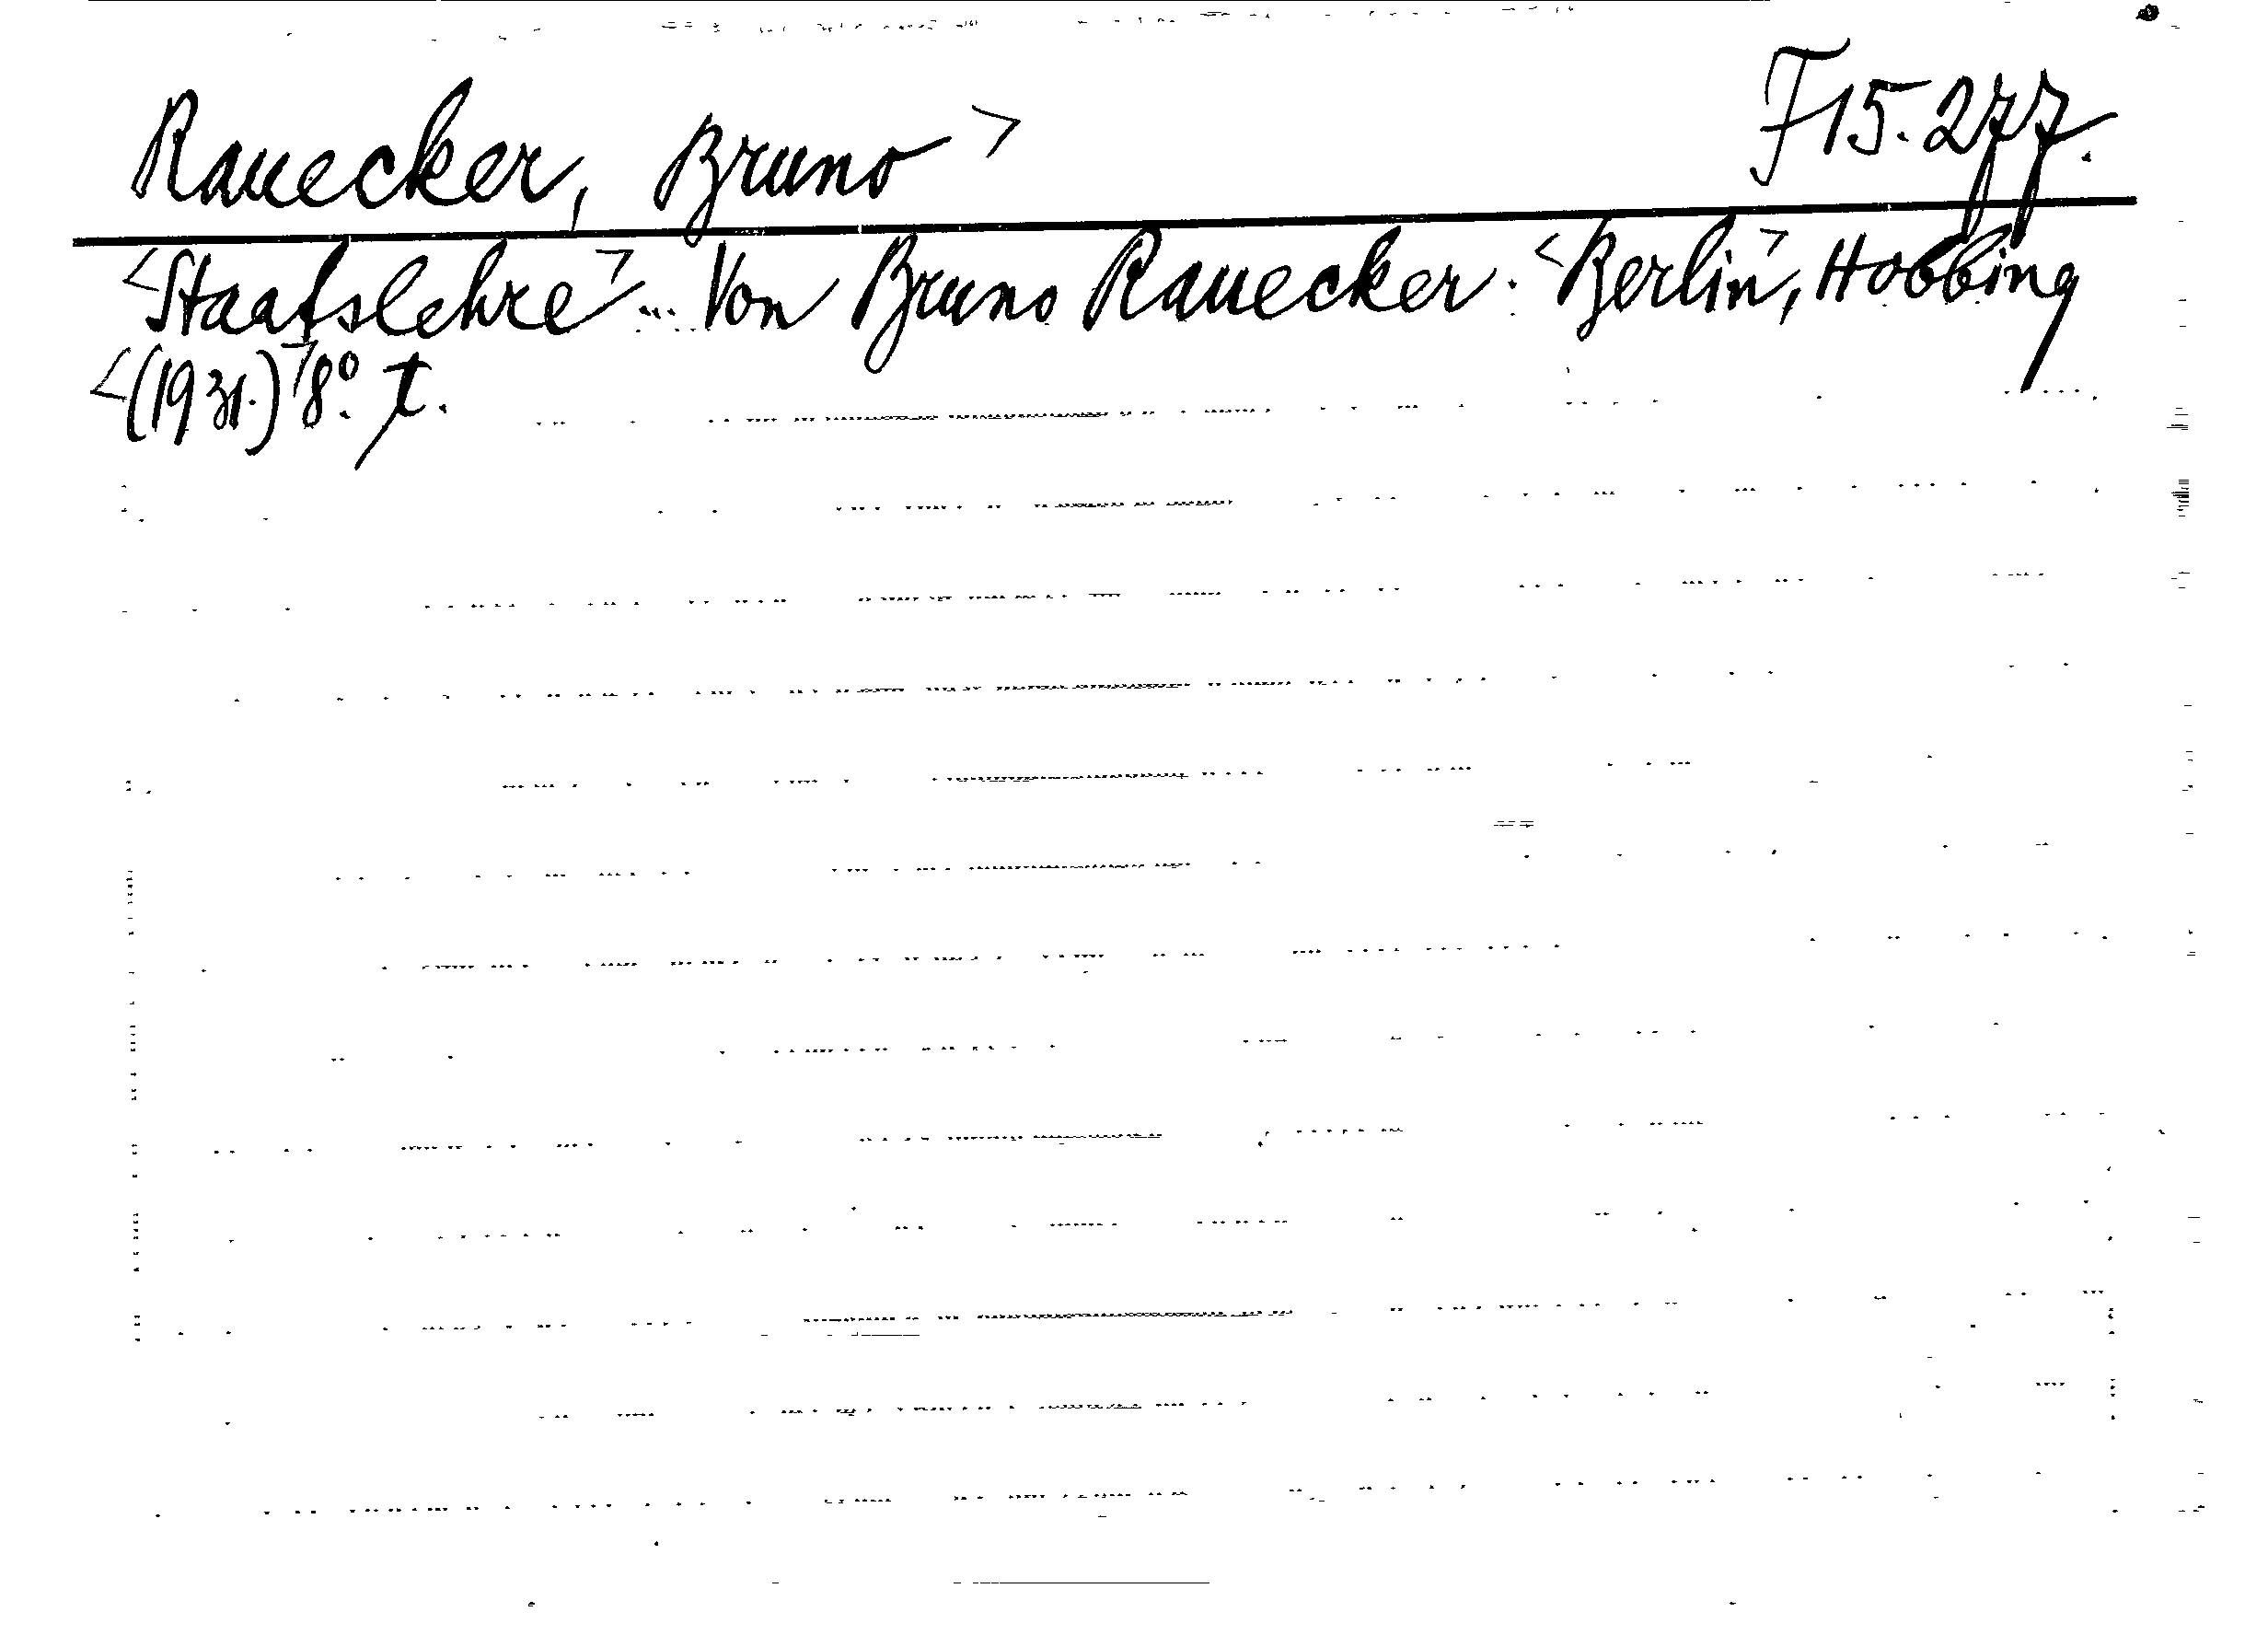 Rauecker, Bruno> F15.277.
<Staatslehre>... Von Bruno Rauecker. <Berlin>, Hobbing
<(1931.)> 8°. t.